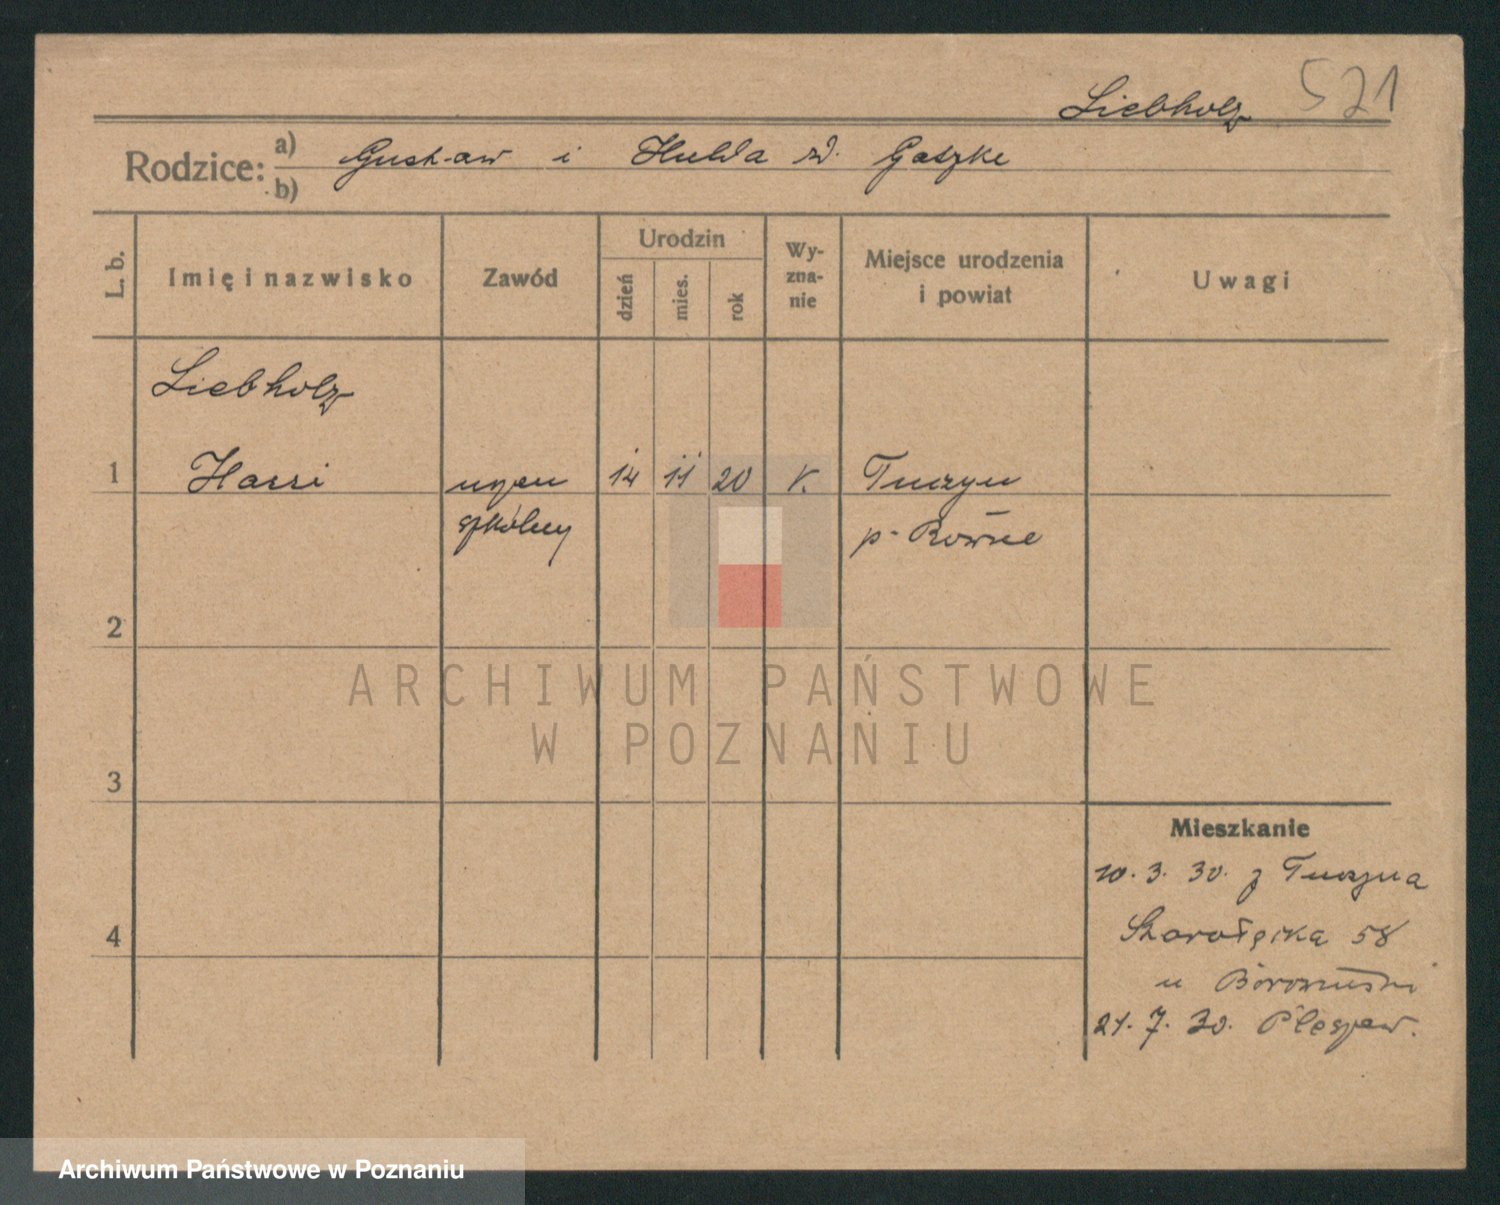 Liebholz 521
Rodzice: a) Gustaw i Hulda zd. Gatzke
b)
L. b. Imię i nazwisko Zawód Urodzin dzień mies. rok Wy-zna-nie Miejsce urodzenia i powiat Uwagi
Liebholz
1 Harri uczeń 14 11 20 Tuczyn
szkolny p. Równe
2
ARCHIWUM PAŃSTWOWE
W POZNANIU
3
Mieszkanie
10. 3. 30. z Tuczyna
4 Starołęcka 58
u
21. 7. 30. Pleszew.
Archiwum Państwowe w Poznaniu